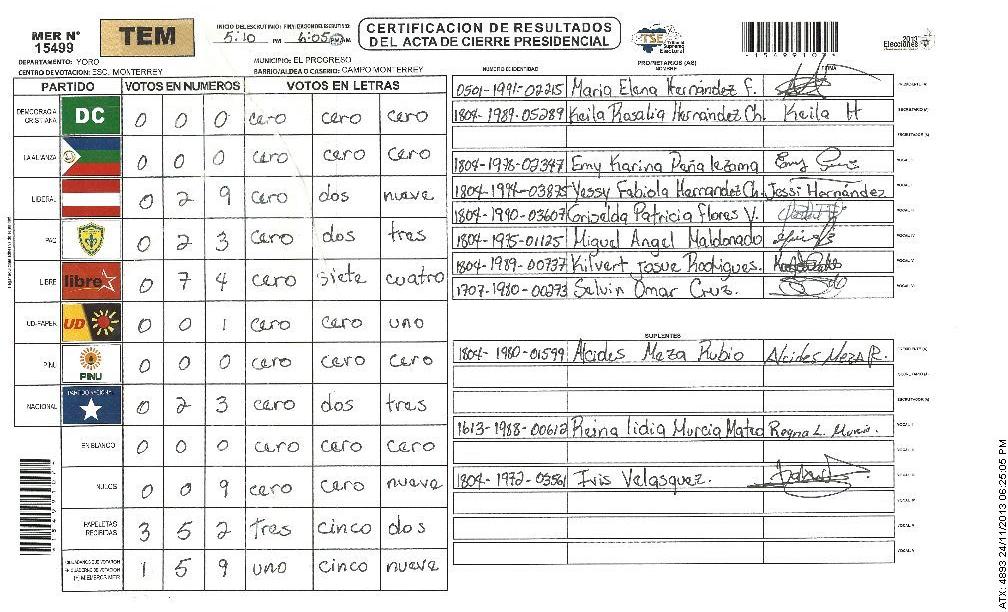 MER N° 15499
TEM
INICIO DEL ESCRUTINIO: 5:10 PM
6:05 PM
CERTIFICACION DE RESULTADOS
DEL ACTA DE CIERRE PRESIDENCIAL
TSE Tribunal Supremo Electoral
15499107
2013 Elecciones
DEPARTAMENTO: YORO
MUNICIPIO: EL PROGRESO
CENTRO DE VOTACION: ESC. MONTERREY
BARRIO/ALDEA O CASERIO: CAMPO MONTERREY
PARTIDO VOTOS EN NUMEROS VOTOS EN LETRAS
DEMOCRACIA CRISTIANA DC 0 0 0 cero cero cero
LA ALIANZA 0 0 0 cero cero cero
LIBERAL 0 2 9 cero dos nueve
PAC 0 2 3 cero dos tres
LIBRE libre 0 7 4 cero siete cuatro
UD-FAPER UD 0 0 1 cero cero uno
PINU PINU 0 0 0 cero cero cero
NACIONAL PARTIDO NACIONAL 0 2 3 cero dos tres
EN BLANCO 0 0 0 cero cero cero
NULOS 0 0 9 cero cero nueve
PAPELETAS RECIBIDAS 3 5 2 tres cinco dos
1 5 9 uno cinco nueve
NUMERO IDENTIDAD PROPIETARIOS (AS) NOMBRE FIRMA
0501-1991-02215 Maria Elena Hernández F. PRESIDENTE (A)
1804-1989-05289 Keila Rosalia Hernández Ch. Keila H SECRETARIO (A)
ESCRUTADOR (A)
1804-1978-02347 Emy Karina Peña Lezama VOCAL I
1804-1994-03875 Yessy Fabiola Hernandez Ch. Jessi Hernández
1804-1990-03607 Griselda Patricia Flores V.
1804-1975-01125 Miguel Angel Maldonado
1804-1989-00737 Kilvert Josue Rodrigues.
1707-1980-00273 Selvin Omar Cruz.
SUPLENTES
1804-1980-01599 Alcides Meza Rubio Alcides Meza R. PRESIDENTE (A)
SECRETARIO (A)
ESCRUTADOR (A)
1613-1988-00612 Reina lidia Murcia Mateo Reyna L. Murcia. VOCAL I
1804-1972-03561 Iris Velasquez.
ATX: 4893 24/11/2013 06:25:05 PM